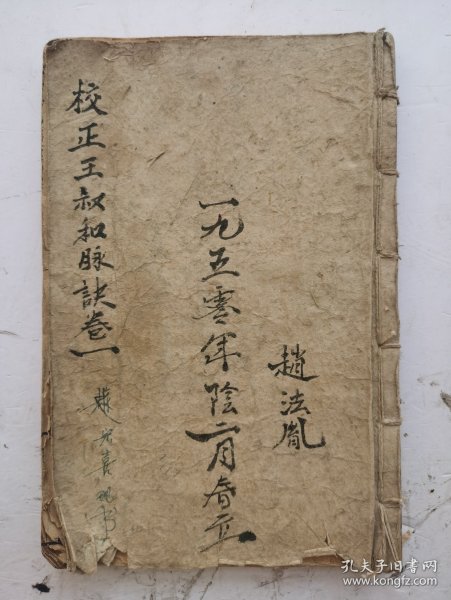 趙法胤
一九五零年陰二月春立
校正王叔和脉訣卷一
趙喜书
孔夫子旧书网
www.kongfz.com